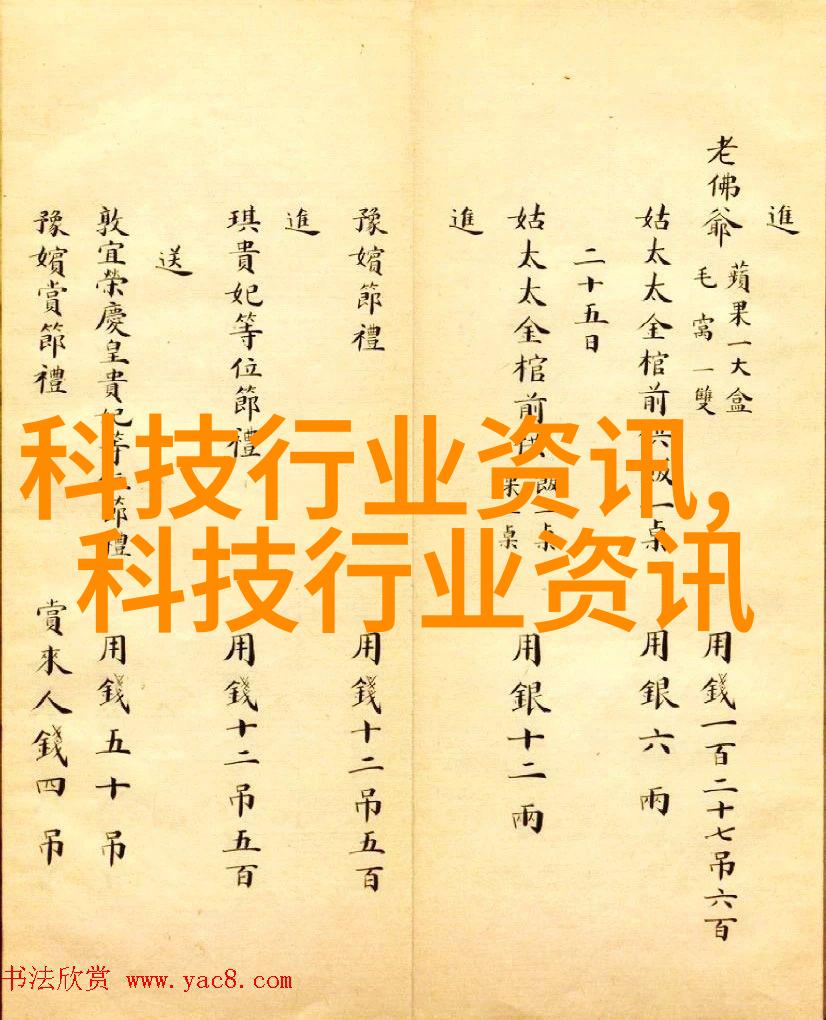 進
老佛爺 蘋果一大盒 毛窩一雙 用錢一百二十七吊六百
姑太太金棺前供飯一桌 用銀六兩
二十五日
姑太太金棺前供 飯一桌 果一桌 用銀十二兩
進
豫嬪節禮 用錢十二吊五百
進
琪貴妃等位節禮 用錢十二吊五百
送
敦宜榮慶皇貴妃等位節禮 用錢五十吊
豫嬪賞節禮 賞來人錢四吊
科技行业资讯,
科技行业资讯
书法欣赏 www.yac8.com